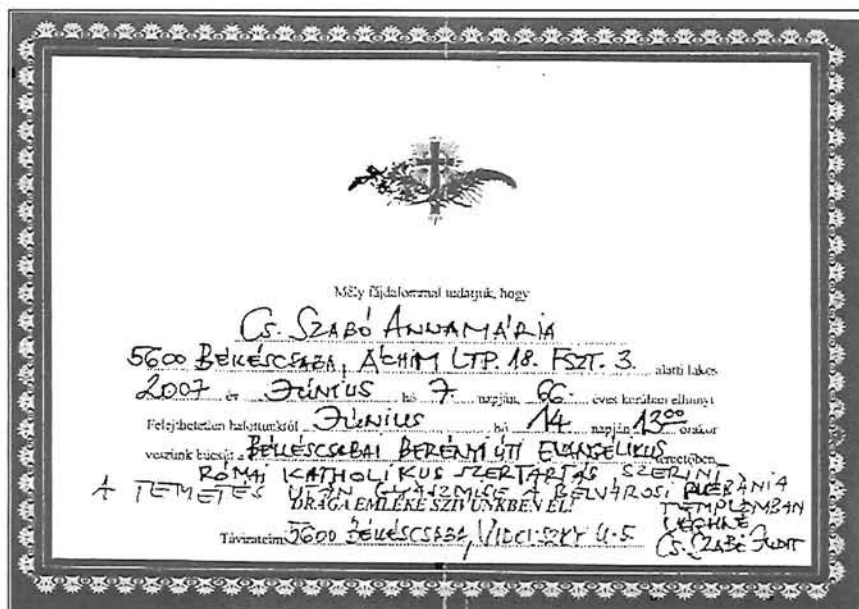 Mély fájdalommal tudatjuk, hogy
Cs. SZABÓ ANNAMÁRIA
5600 BÉKÉSCSABA, ÁCHIM LTP. 18. FSZT. 3. alatti lakos
2007 év JÚNIUS hó 7. napján, 66. éves korában elhunyt
Felejthetetlen halottunktól JÚNIUS hó 14. napján 13⁰⁰ órakor
veszünk búcsút a BÉKÉSCSABAI BERÉNYI ÚTI EVANGÉLIKUS temetőben,
RÓMAI KATHOLIKUS SZERTARTÁS SZERINT
A TEMETÉS UTÁN GYÁSZMISE A BELVÁROSI PLÉBÁNIA
DRÁGA EMLÉKE SZIVÜNKBEN ÉL! TEMPLOMBAN
VÉGHNÉ
Táviratcím: 5600 BÉKÉSCSABA, U. 5. Cs. SZABÓ JUDIT